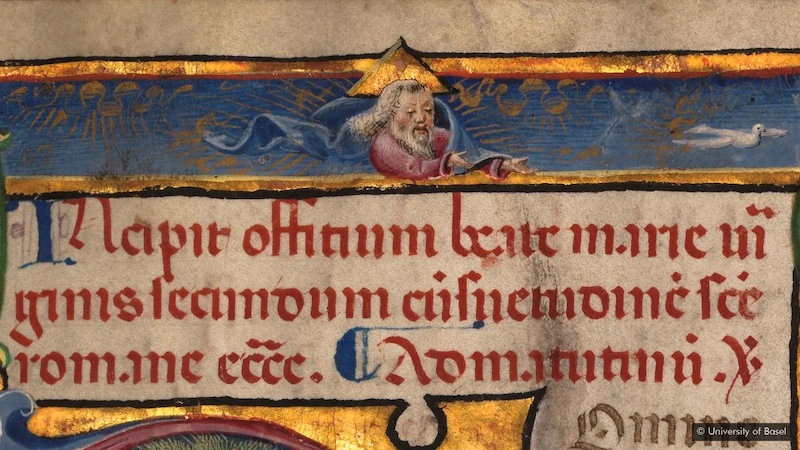 Incipit offitium beate marie vir
ginis secundum cōsuetudinē scē
romane eccē. Ad matutinū. ℣
Domine
© University of Basel